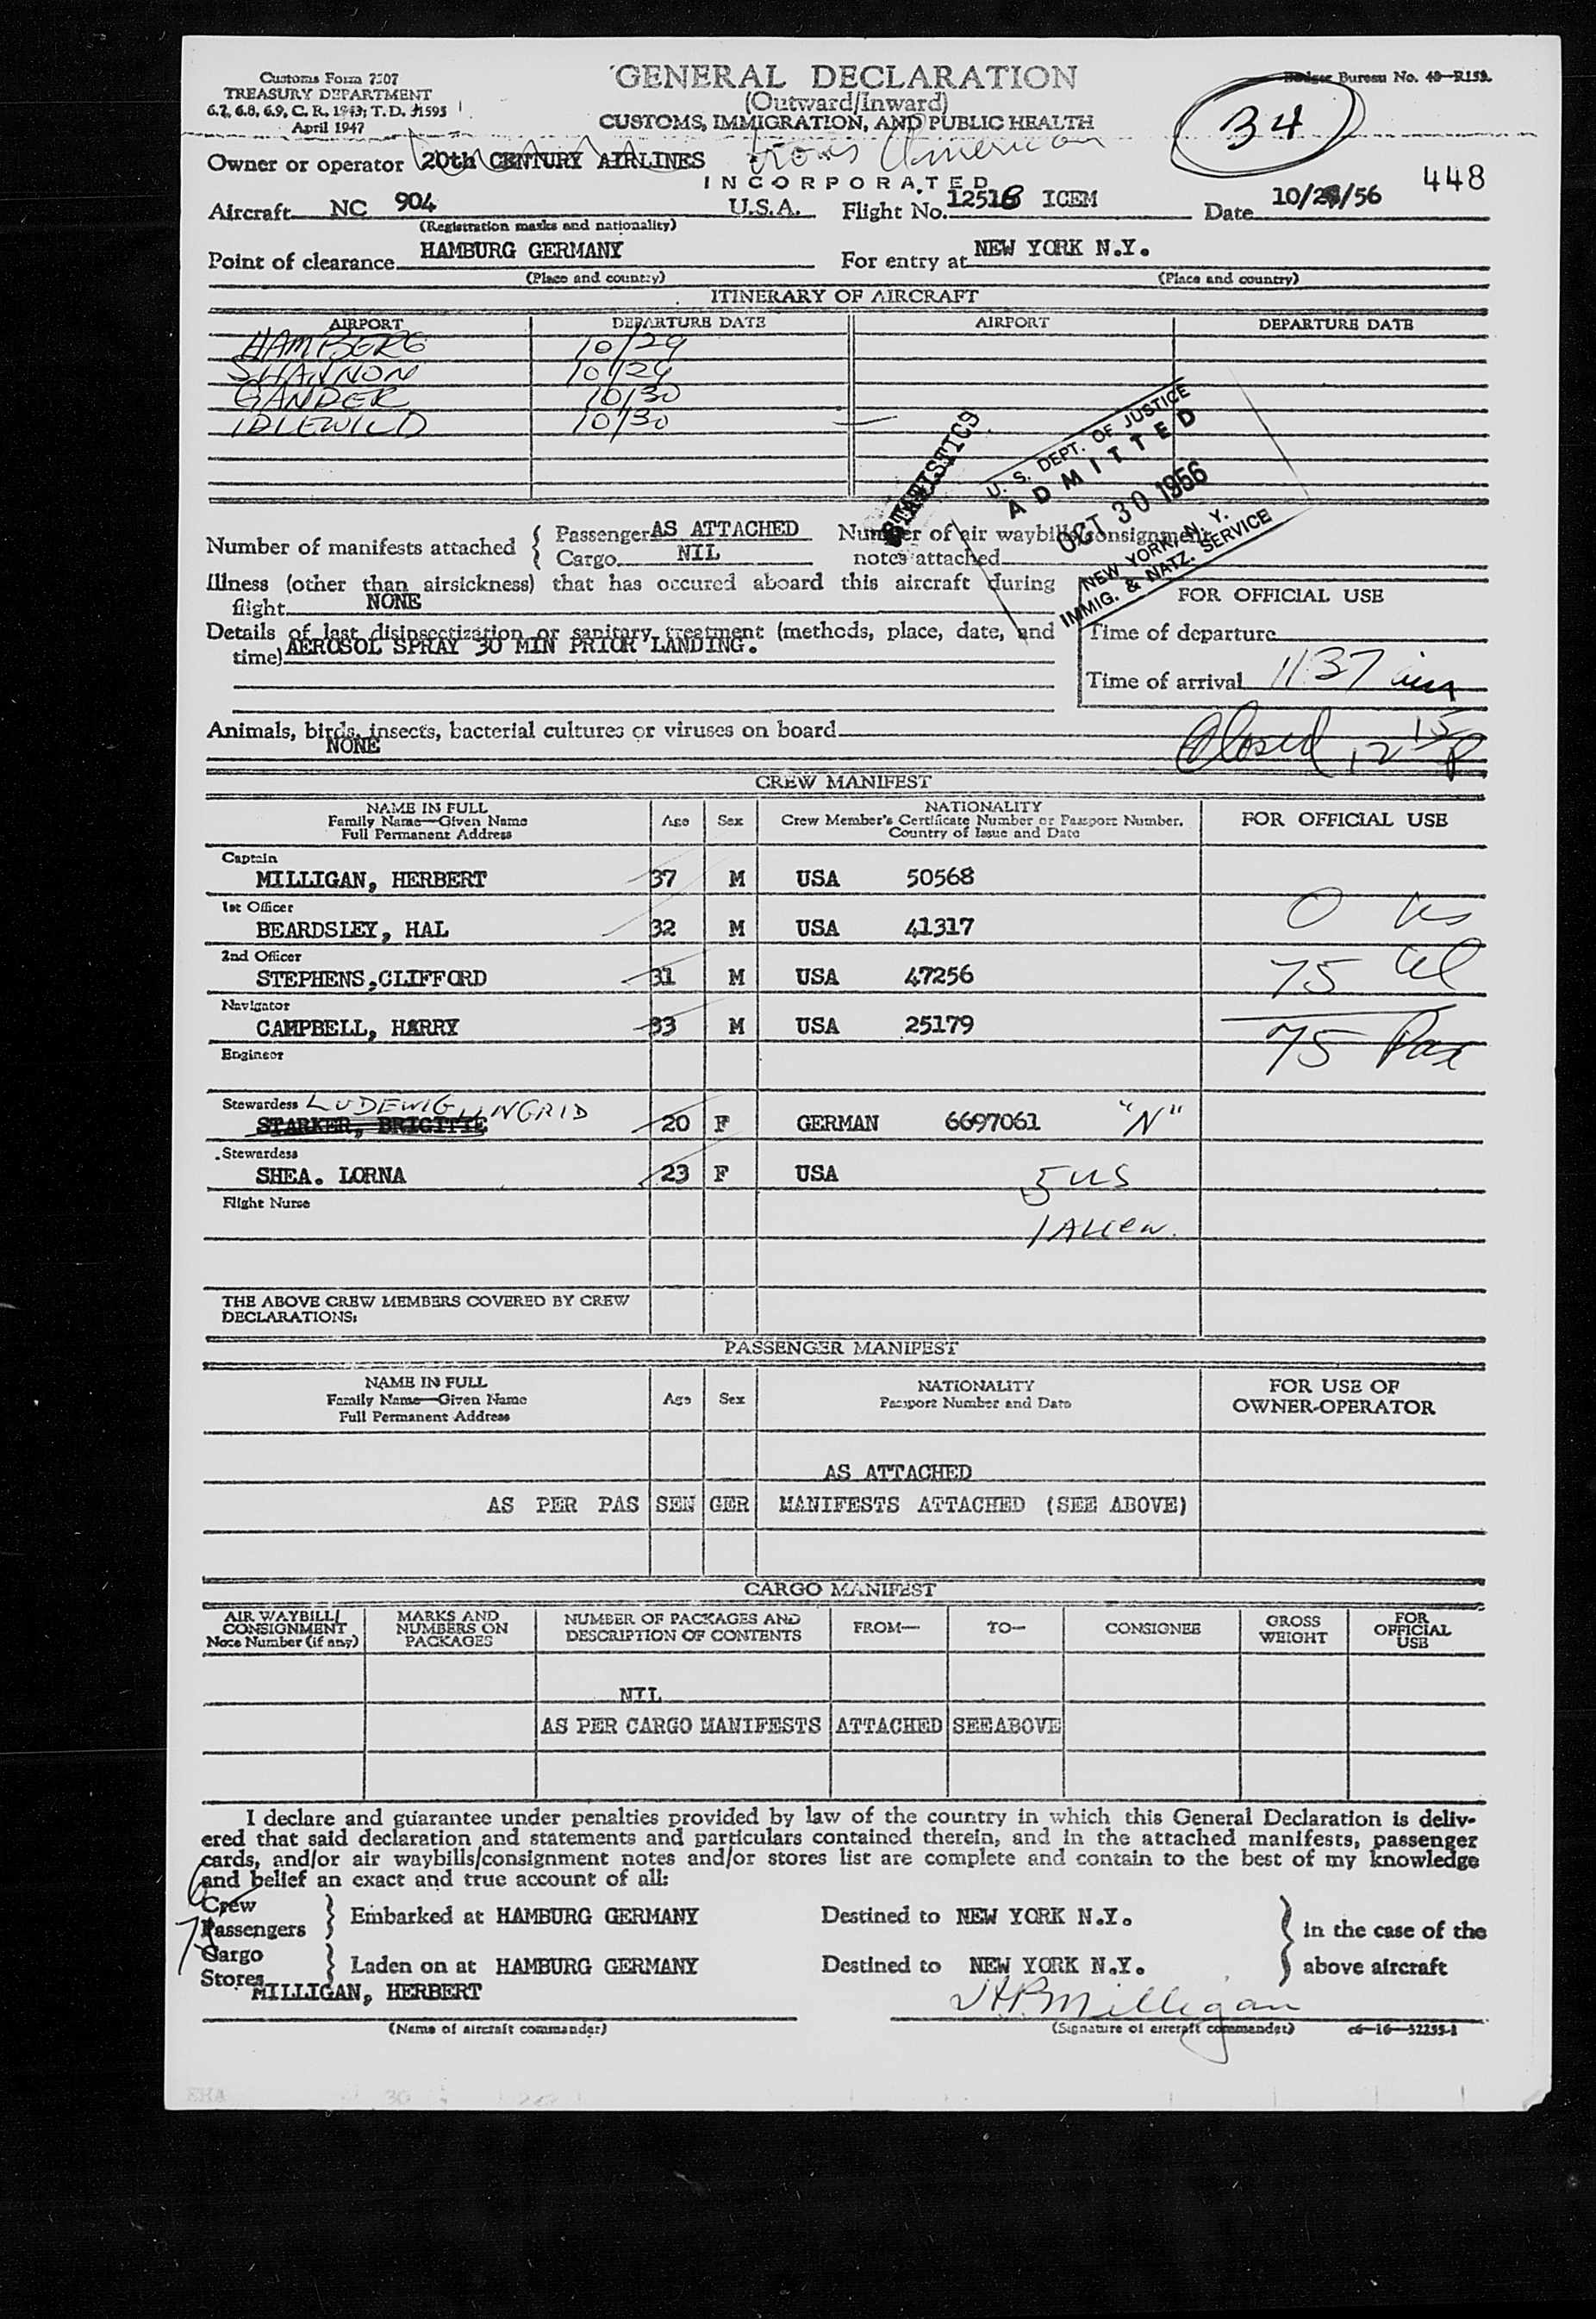 Customs Form 7507
TREASURY DEPARTMENT
6.7, 6.8, 6.9, C. R. 1943; T. D. 51595
April 1947
GENERAL DECLARATION
(Outward/Inward)
CUSTOMS, IMMIGRATION, AND PUBLIC HEALTH
Budget Bureau No. 48-R159.
34
448
Owner or operator 20th CENTURY AIRLINES Trans American
INCORPORATED
Aircraft NC 904 U.S.A. Flight No. 12518 ICEM Date 10/29/56
(Registration marks and nationality)
Point of clearance HAMBURG GERMANY For entry at NEW YORK N.Y.
(Place and country) (Place and country)
ITINERARY OF AIRCRAFT
AIRPORT DEPARTURE DATE AIRPORT DEPARTURE DATE
HAMBERG 10/29
SHANNON 10/29
GANDER 10/30
IDLEWILD 10/30 —
STATISTICS
U. S. DEPT. OF JUSTICE
ADMITTED
OCT 30 1956
NEW YORK, N. Y.
IMMIG. & NATZ. SERVICE
Number of manifests attached { Passenger AS ATTACHED Number of air waybills/consignment
Cargo NIL notes attached
Illness (other than airsickness) that has occured aboard this aircraft during
flight NONE
FOR OFFICIAL USE
Details of last disinsectization or sanitary treatment (methods, place, date, and
time) AEROSOL SPRAY 30 MIN PRIOR LANDING.
Time of departure
Time of arrival 11 37 am
Animals, birds, insects, bacterial cultures or viruses on board
NONE
Closed 12 15 P
CREW MANIFEST
NAME IN FULL
Family Name—Given Name
Full Permanent Address
Age Sex
NATIONALITY
Crew Member's Certificate Number or Passport Number,
Country of Issue and Date
FOR OFFICIAL USE
Captain
MILLIGAN, HERBERT 37 M USA 50568
1st Officer
BEARDSLEY, HAL 32 M USA 41317
0 us
2nd Officer
STEPHENS,CLIFFORD 31 M USA 47256
75 al
Navigator
CAMPBELL, HARRY 33 M USA 25179
75 Pax
Engineer
Stewardess LUDEWIG, INGRID
STARKER, BRIGITTE 20 F GERMAN 6697061 "N"
Stewardess
SHEA. LORNA 23 F USA
5 US
Flight Nurse
1 ALIEN.
THE ABOVE CREW MEMBERS COVERED BY CREW
DECLARATIONS:
PASSENGER MANIFEST
NAME IN FULL
Family Name—Given Name
Full Permanent Address
Age Sex
NATIONALITY
Passport Number and Date
FOR USE OF
OWNER-OPERATOR
AS ATTACHED
AS PER PASSENGER MANIFESTS ATTACHED (SEE ABOVE)
CARGO MANIFEST
AIR WAYBILL/
CONSIGNMENT
Note Number (if any)
MARKS AND
NUMBERS ON
PACKAGES
NUMBER OF PACKAGES AND
DESCRIPTION OF CONTENTS
FROM—
TO—
CONSIGNEE
GROSS
WEIGHT
FOR
OFFICIAL
USE
NIL
AS PER CARGO MANIFESTS ATTACHED SEE ABOVE
I declare and guarantee under penalties provided by law of the country in which this General Declaration is deliv-
ered that said declaration and statements and particulars contained therein, and in the attached manifests, passenger
cards, and/or air waybills/consignment notes and/or stores list are complete and contain to the best of my knowledge
and belief an exact and true account of all:
6 Crew
75 Passengers } Embarked at HAMBURG GERMANY Destined to NEW YORK N.Y. } in the case of the
Cargo
Stores } Laden on at HAMBURG GERMANY Destined to NEW YORK N.Y. above aircraft
MILLIGAN, HERBERT
H B Milligan
(Name of aircraft commander) (Signature of aircraft commander) c6—16—52255-1